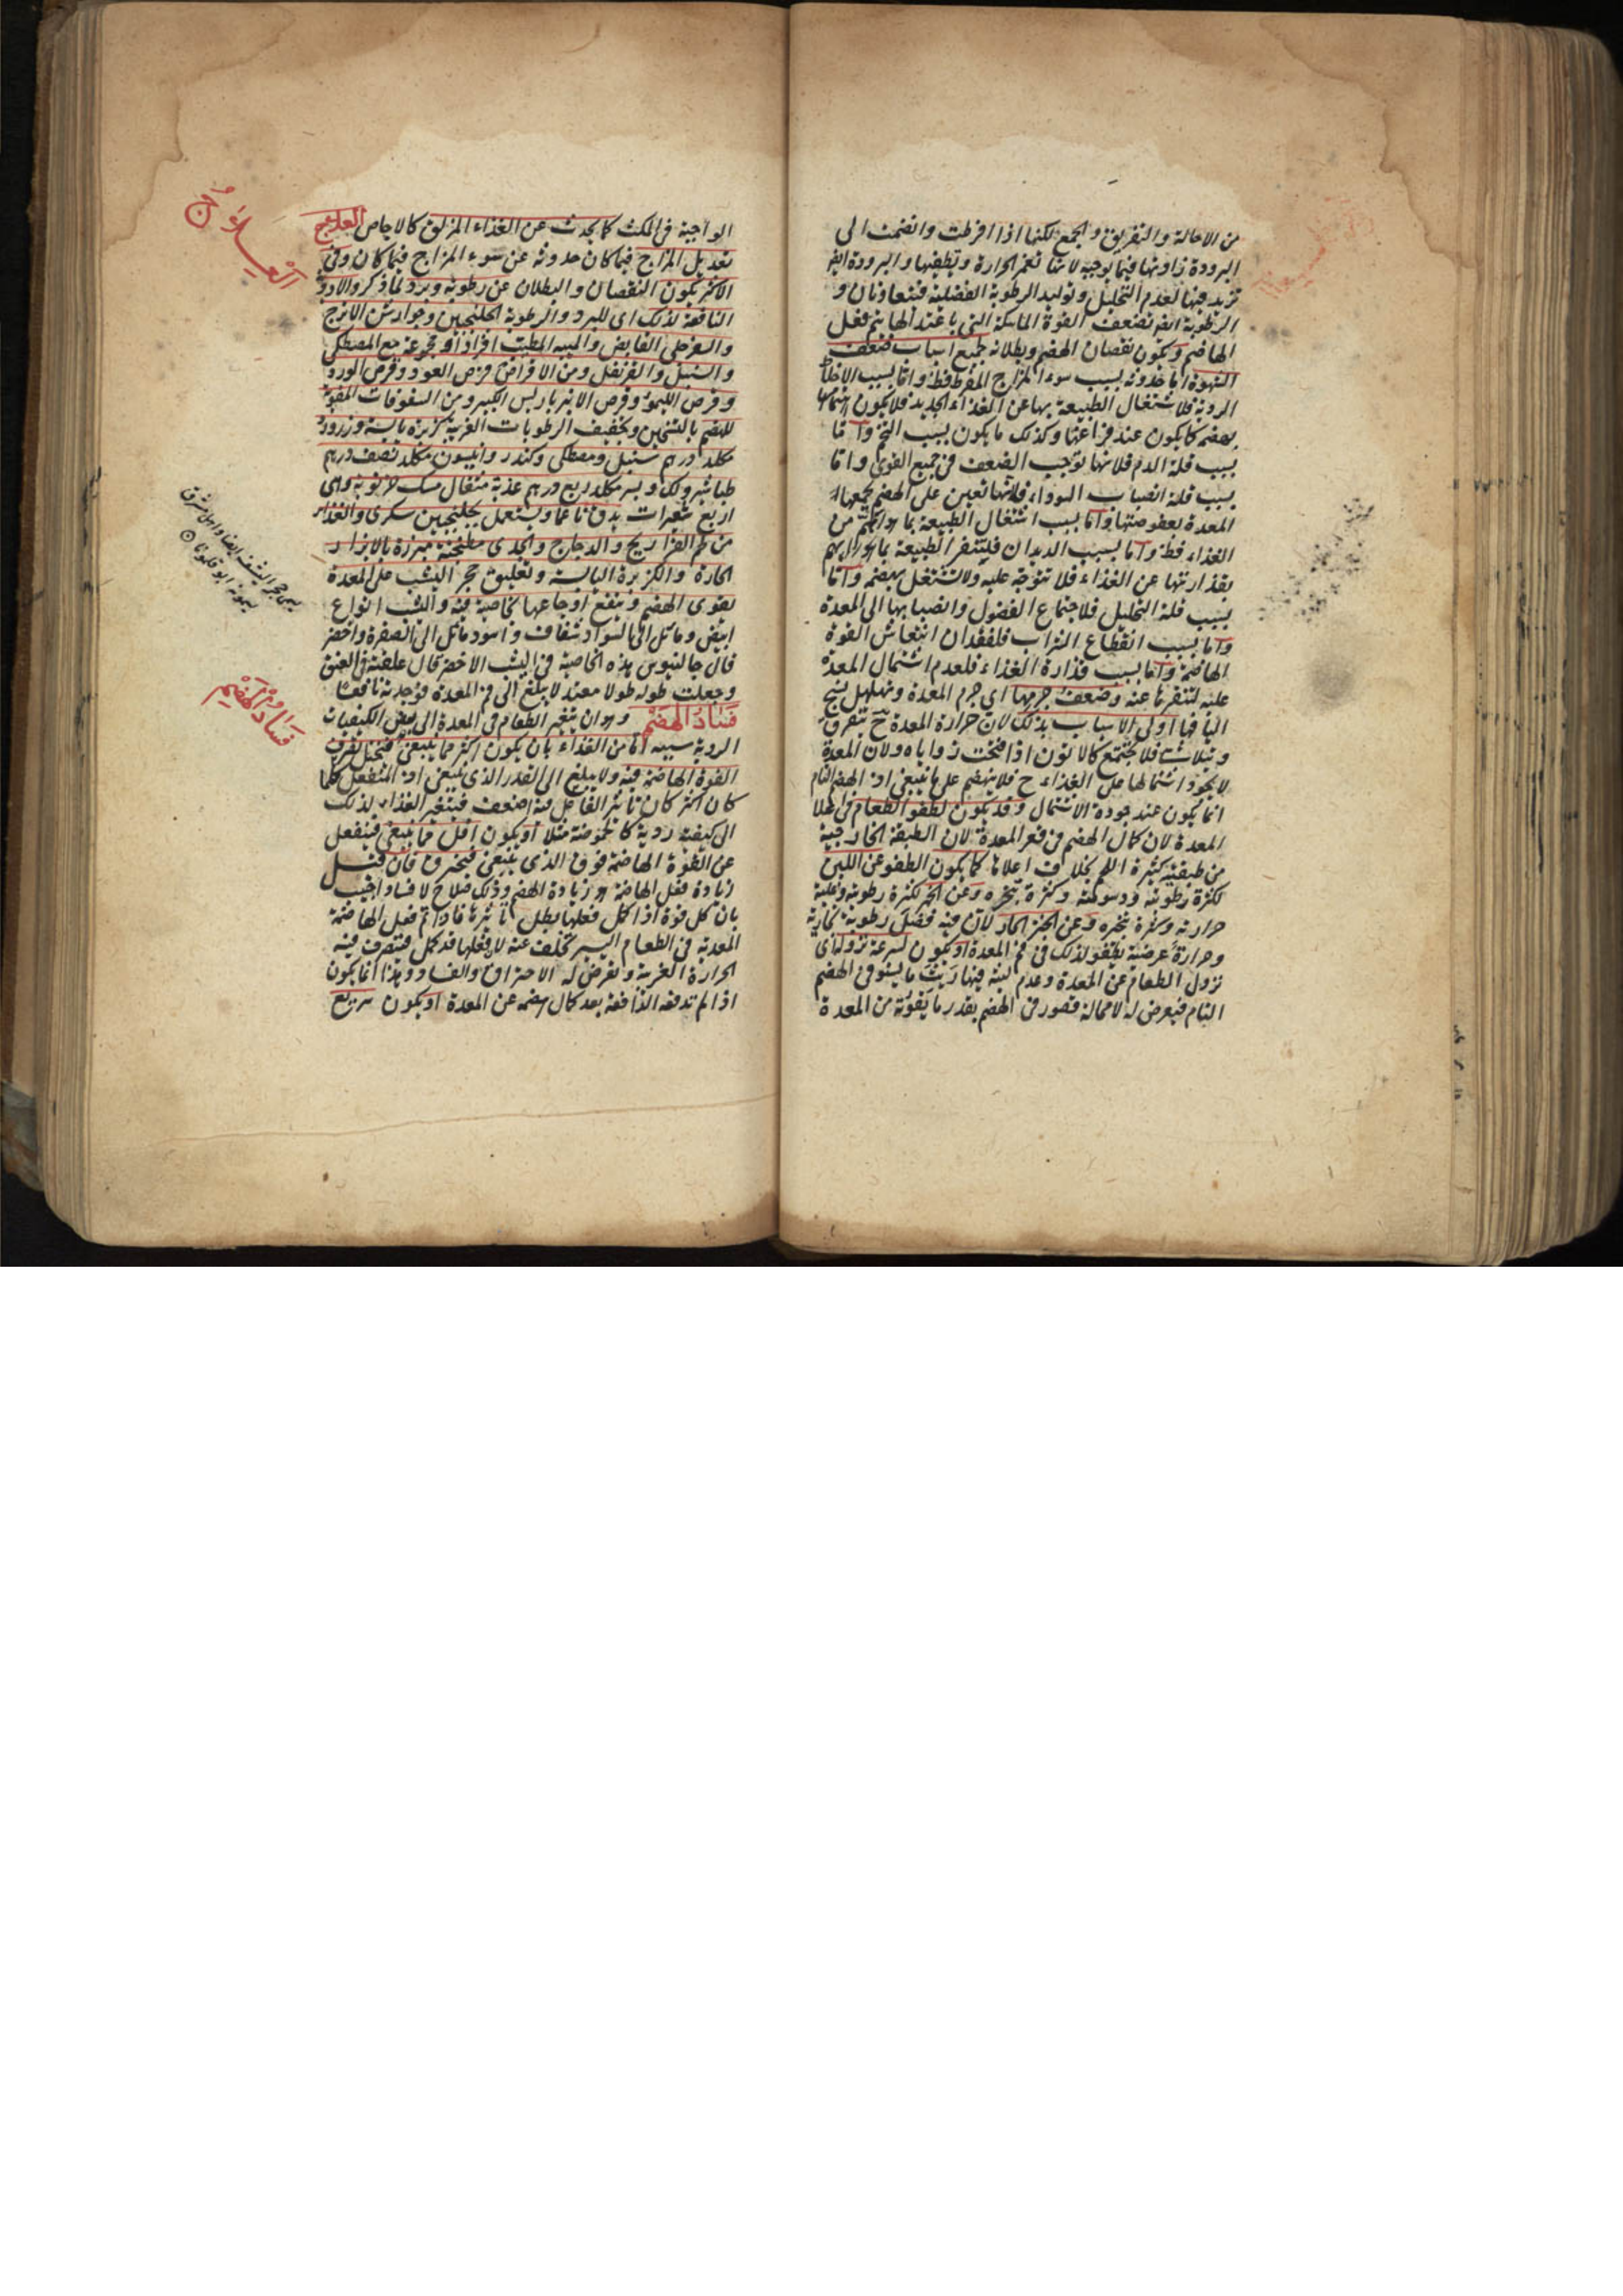 من الاحالة والتفريق والجمع لكنها اذا افرطت وانضمت الى
البرودة زادتها فيما يوجبه لانها تغمر الحرارة وتطفيها والبرودة ايضا
تزيد فيها لعدم التحليل وتوليد الرطوبة الفضلية فتتعاونان و
الرطوبة ايضا تضعف القوة الماسكة التي باعتدالها يتم فعل
الهاضم ويكون نقصان الهضم وبطلانه جميع اسباب ضعف
الشهوة اما حدوثه بسبب سوء المزاج المفرط فظ واما بسبب الاخلاط
الردية فلاشتغال الطبيعة بها عن الغذاء الجديد فلا يكون اهتمامها
بهضمه كما يكون عند فراغها وكذلك ما يكون بسبب التخم واما
بسبب قلة الدم فلانها توجب الضعف في جميع القوى واما
بسبب قلة انصباب السوداء فلانها تعين على الهضم بجمعها
المعدة بعفوصتها واما بسبب اشتغال الطبيعة بما هو اهم من
الغذاء فظ واما بسبب الديدان فلتنفر الطبيعة
بقذارتها عن الغذاء فلا تتوجه عليه ولا تشتغل بهضمه واما
بسبب قلة التحليل فلاجتماع الفضول وانصبابها الى المعدة
واما بسبب انقطاع الشراب فلفقدان انتعاش القوة
الهاضمة واما بسبب قذارة الغذاء فلعدم اشتمال المعدة
عليه لتنفرها عنه وضعف جرمها اي جرم المعدة وتهلهل نسج
اليافها اولى الاسباب بذلك لان حرارة المعدة ح تتفرق
وتتلاشى فلا تجتمع كالاتون اذا فتحت زواياه ولان المعدة
لا يجود اشتمالها على الغذاء ح فلا ينهضم على ما ينبغي اذ الهضم التام
انما يكون عند جودة الاشتمال وقد يكون لطفو الطعام في اعلا
المعدة لان كمال الهضم في قعر المعدة لان الطبقة الخارجية
من طبقتيه كثيرة اللحم بخلاف اعلاها كما يكون الطفو عن اللبن
لكثرة رطوبته ودسومته وكثرة تبخره وعن الخمر لكثرة رطوبته وغلبة
حرارته وكثرة تبخره وعن الخبز الحار لان فيه فضل رطوبة بخارية
وحرارة عرضية يطفو لذلك في فم المعدة او يكون لسرعة نزوله اي
نزول الطعام عن المعدة وعدم لبثه فيها ريث ما يستوفى الهضم
التام فيعرض له لا محالة قصور في الهضم بقدر ما يفوته من المعدة
الواجبة في المكث كما يحدث عن الغذاء المزلق كالاجاص العلاج
تعديل المزاج فيما كان حدوثه عن سوء المزاج فيما كان وفي
الاكثر يكون النقصان والبطلان عن رطوبة وبرد لما ذكر والادوية
النافعة لذلك اي للبرد والرطوبة الجلنجبين وجوارش الاترج
والسفرجلي القابض والميبه المطيب افرادا او مجموعة مع المصطكى
والسنبل والقرنفل ومن الاقراص قرص العود وقرص الورد
وقرص الليمو وقرص الانبرباريس الكبير ومن السفوفات المقوية
للهضم بالتسخين وتجفيف الرطوبات الغريبة كزبرة يابسة وزرورد
مكلد درهم سنبل ومصطكى وكندر وانيسون مكلد نصف درهم
طباشير ولك وبسر مكلد ربع درهم عذبة مثقال مسك خرنوبة وهي
اربع شعيرات يدق ناعما ويستعمل بجلنجبين سكري والغذاء
من لحم الفراريج والدجاج والجدي مطنجنة مبزرة بالابزار
الحارة والكزبرة اليابسة وتعليق حجر اليشب على المعدة
يقوي الهضم وينفع اوجاعها لخاصية فيه واليشب انواع
ابيض ومائل الى السواد شفاف واسود مائل الى الصفرة واخضر
قال جالينوس هذه الخاصية في اليشب الاخضر قال علقته في العنق
وجعلت طوله طولا معتدلا يبلغ الى فم المعدة فوجدته نافعا
فساد الهضم وهو ان يتغير الطعام في المعدة الى بعض الكيفيات
الردية سببه اما من الغذاء بان يكون اكثر مما ينبغي فيختل تصرف
القوة الهاضمة فيه ولا يبلغ الى القدر الذي ينبغي اذ المنفعل كلما
كان اكثر كان تاثير الفاعل فيه اضعف فيتغير الغذاء لذلك
الى كيفية ردية كالحموضة مثلا او يكون اقل مما ينبغي فينفعل
عن القوة الهاضمة فوق الذي ينبغي فيحترق فان قيل
زيادة فعل الهاضمة هو زيادة الهضم وذلك صلاح لا فساد اجيب
بان كل قوة اذا كمل فعلها بطل تاثيرها فاذا تم فعل الهاضمة
المعدية في الطعام اليسير تخلف عنه لان فعلها قد كمل فيتصرف فيه
الحرارة الغريبة وتعرض له الاحتراق والفساد وهذا انما يكون
اذا لم تدفعه الدافعة بعد كمال هضمه عن المعدة او يكون سريع
العلاج
فساد الهضم